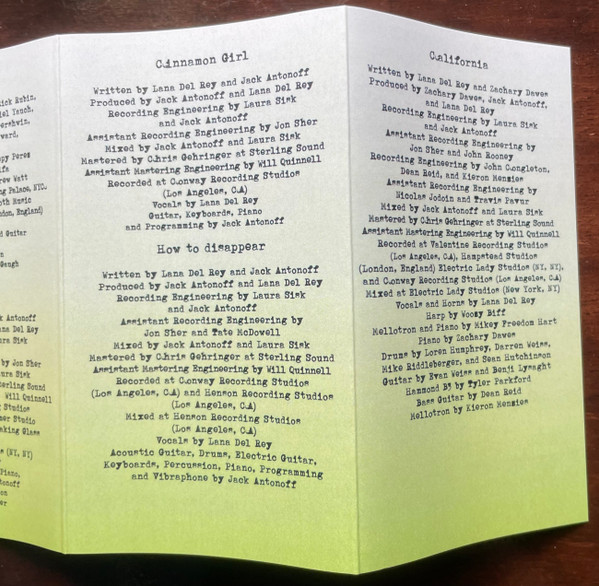 ick Rubin,
el Yauch,
ershwin,
ward,
py Perez
ifa
rew Watt
ng Palace, NYC.
oth Music
ndon, England)
d Guitar
n
Gough
k Antonoff
na Del Rey
ura Sisk
by Jon Sher
ura Sisk
erling Sound
Will Quinnell
Studios
mer Studio
aking Glass
s (NY, NY)
Piano,
tonoff
on
er
Cinnamon Girl
Written by Lana Del Rey and Jack Antonoff
Produced by Jack Antonoff and Lana Del Rey
Recording Engineering by Laura Sisk
and Jack Antonoff
Assistant Recording Engineering by Jon Sher
Mixed by Jack Antonoff and Laura Sisk
Mastered by Chris Gehringer at Sterling Sound
Assistant Mastering Engineering by Will Quinnell
Recorded at Conway Recording Studios
(Los Angeles, CA)
Vocals by Lana Del Rey
Guitar, Keyboards, Piano
and Programming by Jack Antonoff
How to disappear
Written by Lana Del Rey and Jack Antonoff
Produced by Jack Antonoff and Lana Del Rey
Recording Engineering by Laura Sisk
and Jack Antonoff
Assistant Recording Engineering by
Jon Sher and Tate McDowell
Mixed by Jack Antonoff and Laura Sisk
Mastered by Chris Gehringer at Sterling Sound
Assistant Mastering Engineering by Will Quinnell
Recorded at Conway Recording Studios
(Los Angeles, CA) and Henson Recording Studios
(Los Angeles, CA)
Mixed at Henson Recording Studios
(Los Angeles, CA)
Vocals by Lana Del Rey
Acoustic Guitar, Drums, Electric Guitar,
Keyboards, Percussion, Piano, Programming
and Vibraphone by Jack Antonoff
California
Written by Lana Del Rey and Zachary Dawes
Produced by Zachary Dawes, Jack Antonoff,
and Lana Del Rey
Recording Engineering by Laura Sisk
and Jack Antonoff
Assistant Recording Engineering by
Jon Sher and John Rooney
Recording Engineering by John Congleton,
Dean Reid, and Kieron Menzies
Assistant Recording Engineering by
Nicolas Jodoin and Travis Pavur
Mixed by Jack Antonoff and Laura Sisk
Mastered by Chris Gehringer at Sterling Sound
Assistant Mastering Engineering by Will Quinnell
Recorded at Valentine Recording Studios
(Los Angeles, CA), Hampstead Studios
(London, England) Electric Lady Studios (NY, NY),
and Conway Recording Studios (Los Angeles, CA)
Mixed at Electric Lady Studios (New York, NY)
Vocals and Horns by Lana Del Rey
Harp by Woozy Biff
Mellotron and Piano by Mikey Freedom Hart
Piano by Zachary Dawes
Drums by Loren Humphrey, Darren Weiss,
Mike Riddleberger, and Sean Hutchinson
Guitar by Evan Weiss and Benji Lysaght
Hammond B3 by Tyler Parkford
Bass Guitar by Dean Reid
Mellotron by Kieron Menzies